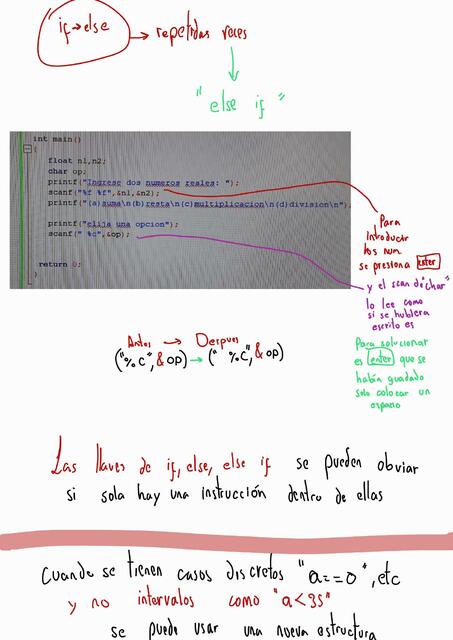 if → else → repetidas veces
"else if"
int main()
{
float n1,n2;
char op;
printf("Ingrese dos numeros reales: ");
scanf("%f %f",&n1,&n2);
printf("(a)suma\n(b)resta\n(c)multiplicacion\n(d)division\n");
printf("elija una opcion");
scanf(" %c",&op);
return 0;
}
Para
introducir
los num
se presiona enter
y el scan de "char"
lo lee como
si se hubiera
escrito es
Para solucionar
es enter que se
habían guadado
solo colocar un
espacio
Antes → Despues
("%c",&op) → (" %c",&op)
Las llaves de if, else, else if se pueden obviar
si sola hay una instrucción dentro de ellas
Cuando se tienen casos discretos "a==0", etc
y no intervalos como "a<35"
se puede usar una nueva estructura